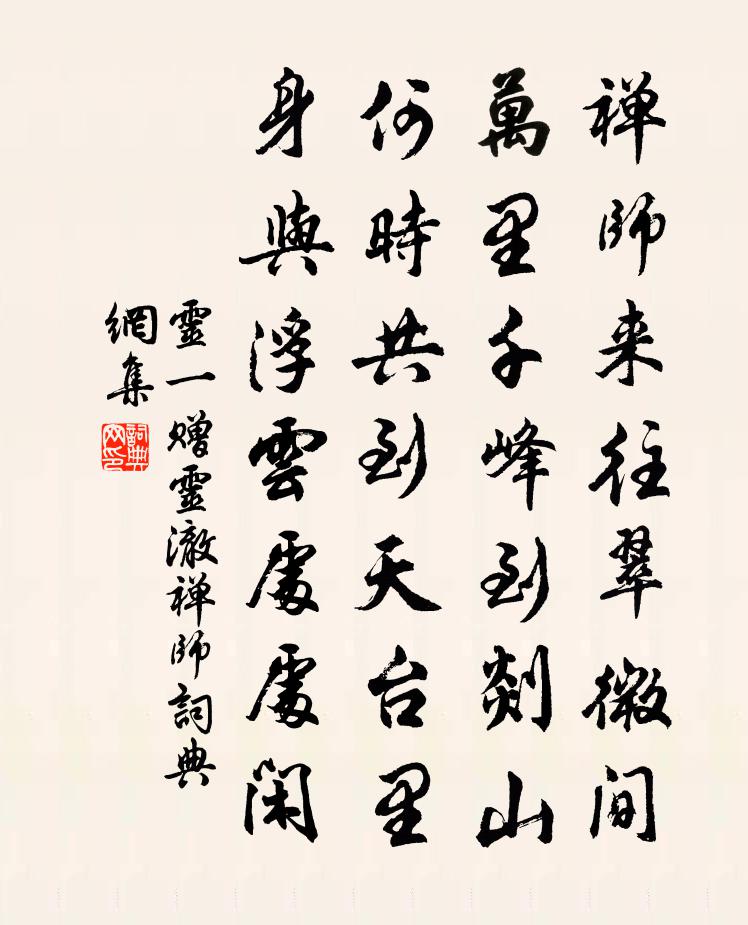 禅師来往翠微间
萬里千峰到剡山
何時共到天台里
身與浮雲處處闲
靈一赠靈澈禅師詞典
網集
詞典网印